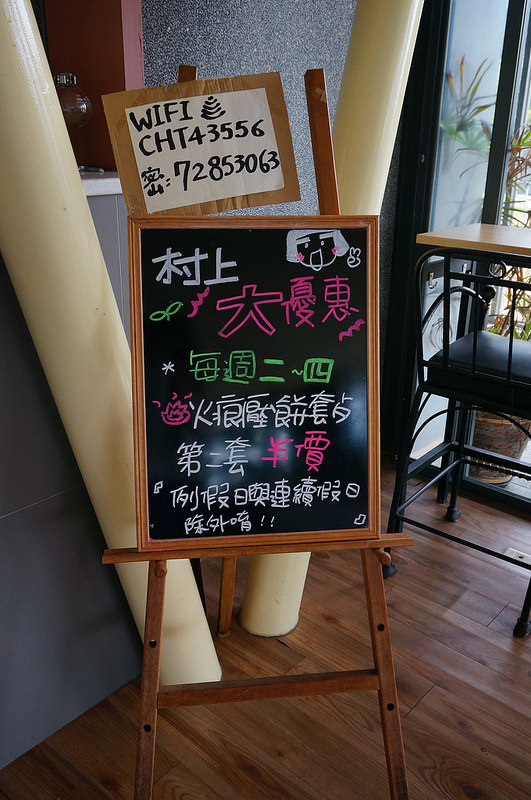 WIFI
CHT43556
密:72853063
村上
大優惠
* 每週二~四
火痕壓餅套ㄅ
第二套 半價
『例假日與連續假日
除外唷!!』